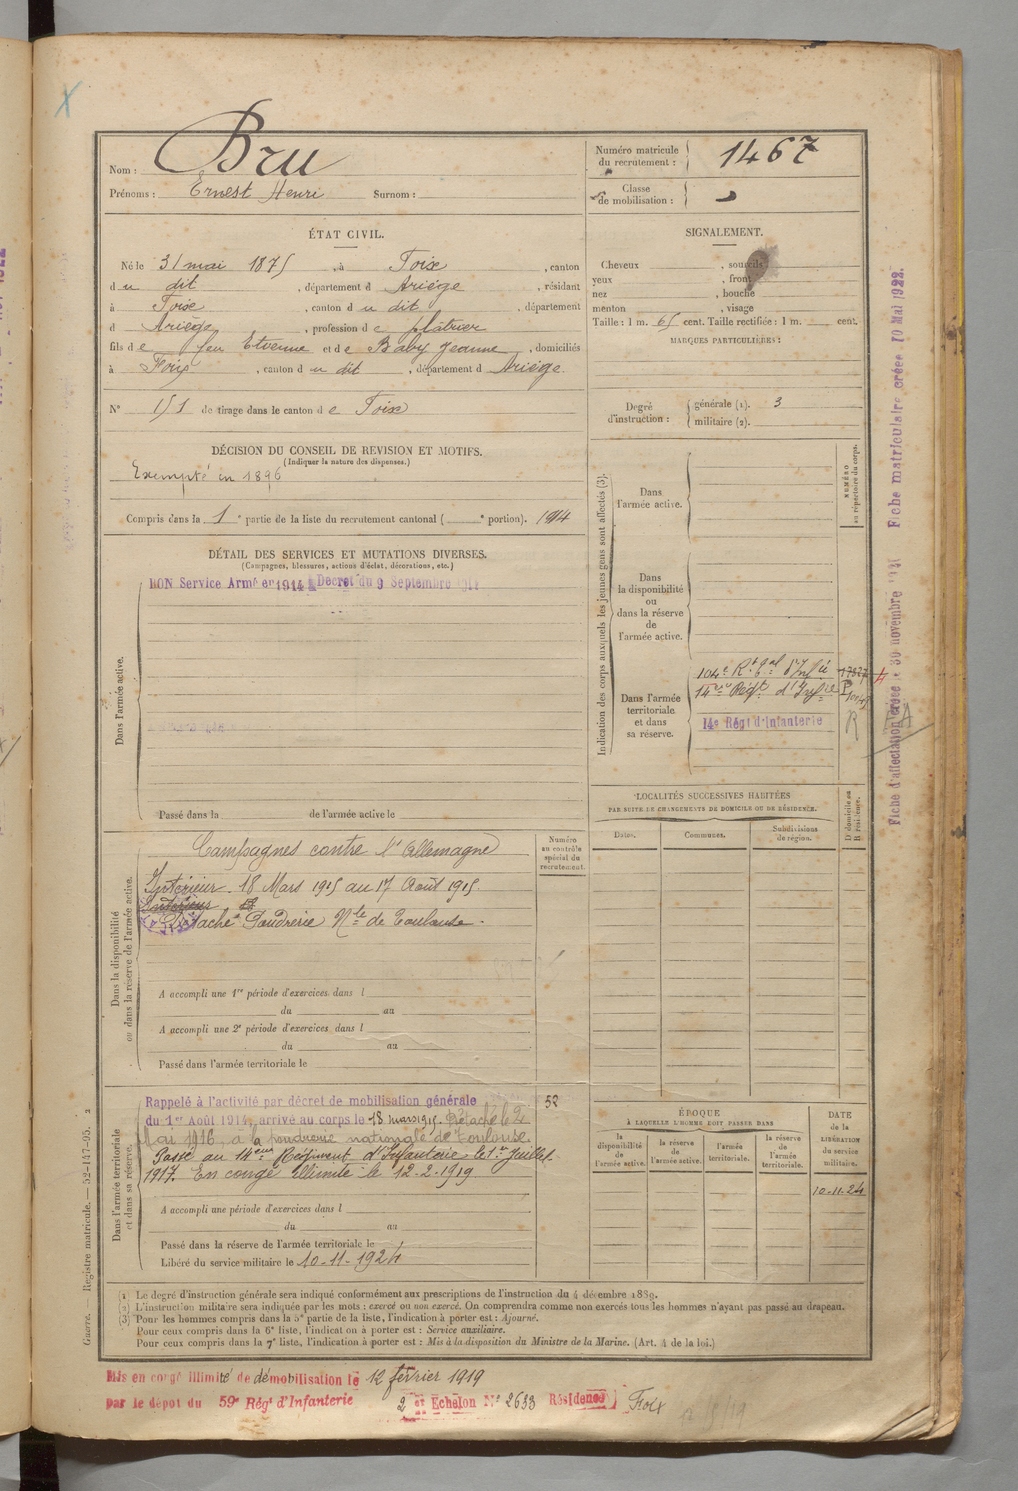 Nom : Bru
Prénoms : Ernest Henri Surnom :
Numéro matricule du recrutement : 1467
Classe de mobilisation :
ÉTAT CIVIL.
Né le 31 mai 1875, à Foix, canton
du dit, département d Ariège, résidant
à Foix, canton du dit, département
d Ariège, profession de plâtrier
fils de feu Etienne et de Baby Jeanne, domiciliés
à Foix, canton du dit, département d Ariège.
N° 151 de tirage dans le canton de Foix
SIGNALEMENT.
Cheveux , sourcils
yeux , front
nez , bouche
menton , visage
Taille : 1 m. 65 cent. Taille rectifiée : 1 m. cent.
MARQUES PARTICULIÈRES :
Degré d'instruction : générale (1). 3
militaire (2).
DÉCISION DU CONSEIL DE REVISION ET MOTIFS.
(Indiquer la nature des dispenses.)
Exempté en 1896
Compris dans la 1e partie de la liste du recrutement cantonal ( e portion). 1914
DÉTAIL DES SERVICES ET MUTATIONS DIVERSES.
(Campagnes, blessures, actions d'éclat, décorations, etc.)
BON Service Armé en 1914 Décret du 9 Septembre
Dans l'armée active.
Passé dans la de l'armée active le
Indication des corps auxquels les jeunes gens sont affectés (3).
NUMÉRO au répertoire du corps.
Dans l'armée active.
Dans la disponibilité ou dans la réserve de l'armée active.
Dans l'armée territoriale et dans sa réserve.
14e Régt d'Infie
14e Régt d'Infanterie
R
LOCALITÉS SUCCESSIVES HABITÉES
PAR SUITE DE CHANGEMENTS DE DOMICILE OU DE RÉSIDENCE.
Dates. Communes. Subdivisions de région. D domicile ou R résidence.
Dans la disponibilité ou dans la réserve de l'armée active.
Numéro au contrôle spécial du recrutement.
Campagnes contre l'Allemagne
Intérieur. 18 Mars 1915 au 17 Août 1915.
Intérieur
Détaché Poudrerie Nle de Toulouse.
A accompli une 1re période d'exercices dans l
du au
A accompli une 2e période d'exercices dans l
du au
Passé dans l'armée territoriale le
Dans l'armée territoriale et dans sa réserve.
Rappelé à l'activité par décret de mobilisation générale 52
du 1er Août 1914, arrivé au corps le 18 mars 1915. Détaché le 2
Mai 1916, à la poudrerie nationale de Toulouse.
Passé au 14eme Régiment d'Infanterie le 1er Juillet
1917. En congé illimité le 12-2-1919
A accompli une période d'exercices dans l
du au
Passé dans la réserve de l'armée territoriale le
Libéré du service militaire le 10-11-1924
ÉPOQUE
À LAQUELLE L'HOMME DOIT PASSER DANS
la disponibilité de l'armée active. la réserve de l'armée active. l'armée territoriale. la réserve de l'armée territoriale.
DATE de la LIBÉRATION du service militaire.
10-11-24
(1) Le degré d'instruction générale sera indiqué conformément aux prescriptions de l'instruction du 4 décembre 1889.
(2) L'instruction militaire sera indiquée par les mots : exercé ou non exercé. On comprendra comme non exercés tous les hommes n'ayant pas passé au drapeau.
(3) Pour les hommes compris dans la 5e partie de la liste, l'indication à porter est : Ajourné.
Pour ceux compris dans la 6e liste, l'indication à porter est : Service auxiliaire.
Pour ceux compris dans la 7e liste, l'indication à porter est : Mis à la disposition du Ministre de la Marine. (Art. 4 de la loi.)
Mis en congé illimité de démobilisation le 12 février 1919
par le dépôt du 59e Régt d'Infanterie 2 et Echelon N° 2633 Résidence Foix
Guerre. — Registre matricule. — 52-137-95. 2
Fiche matriculaire créée 10 Mai 1922.
Fiche d'affectation créée le 30 novembre